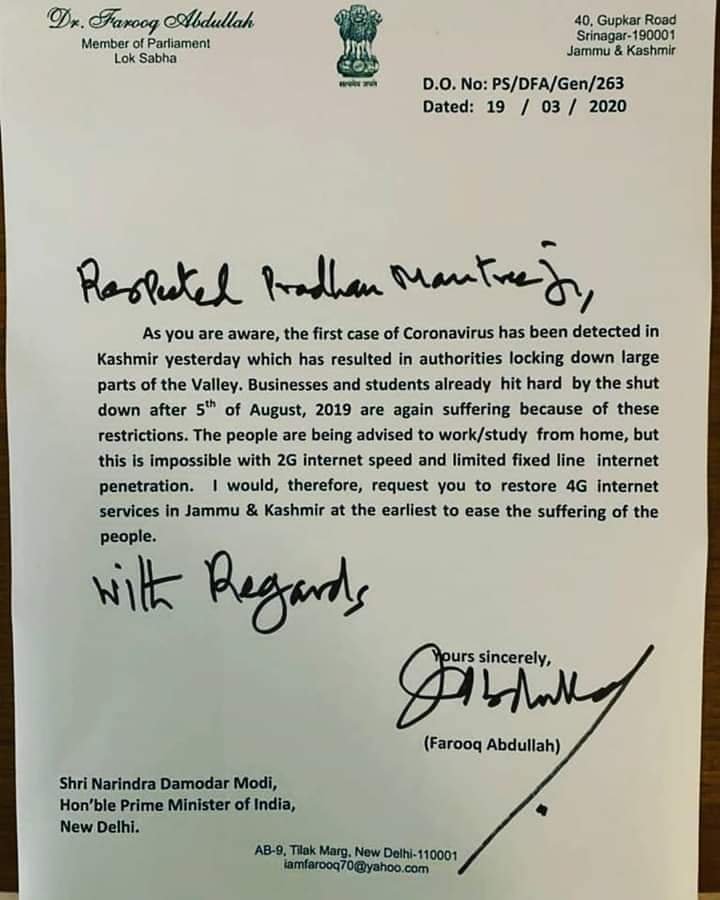 Dr. Farooq Abdullah
Member of Parliament
Lok Sabha
सत्यमेव जयते
40, Gupkar Road
Srinagar-190001
Jammu & Kashmir
D.O. No: PS/DFA/Gen/263
Dated: 19 / 03 / 2020
Respected Pradhan Mantree ji,
As you are aware, the first case of Coronavirus has been detected in
Kashmir yesterday which has resulted in authorities locking down large
parts of the Valley. Businesses and students already hit hard by the shut
down after 5th of August, 2019 are again suffering because of these
restrictions. The people are being advised to work/study from home, but
this is impossible with 2G internet speed and limited fixed line internet
penetration. I would, therefore, request you to restore 4G internet
services in Jammu & Kashmir at the earliest to ease the suffering of the
people.
With Regards
Yours sincerely,
(Farooq Abdullah)
Shri Narindra Damodar Modi,
Hon'ble Prime Minister of India,
New Delhi.
AB-9, Tilak Marg, New Delhi-110001
iamfarooq70@yahoo.com